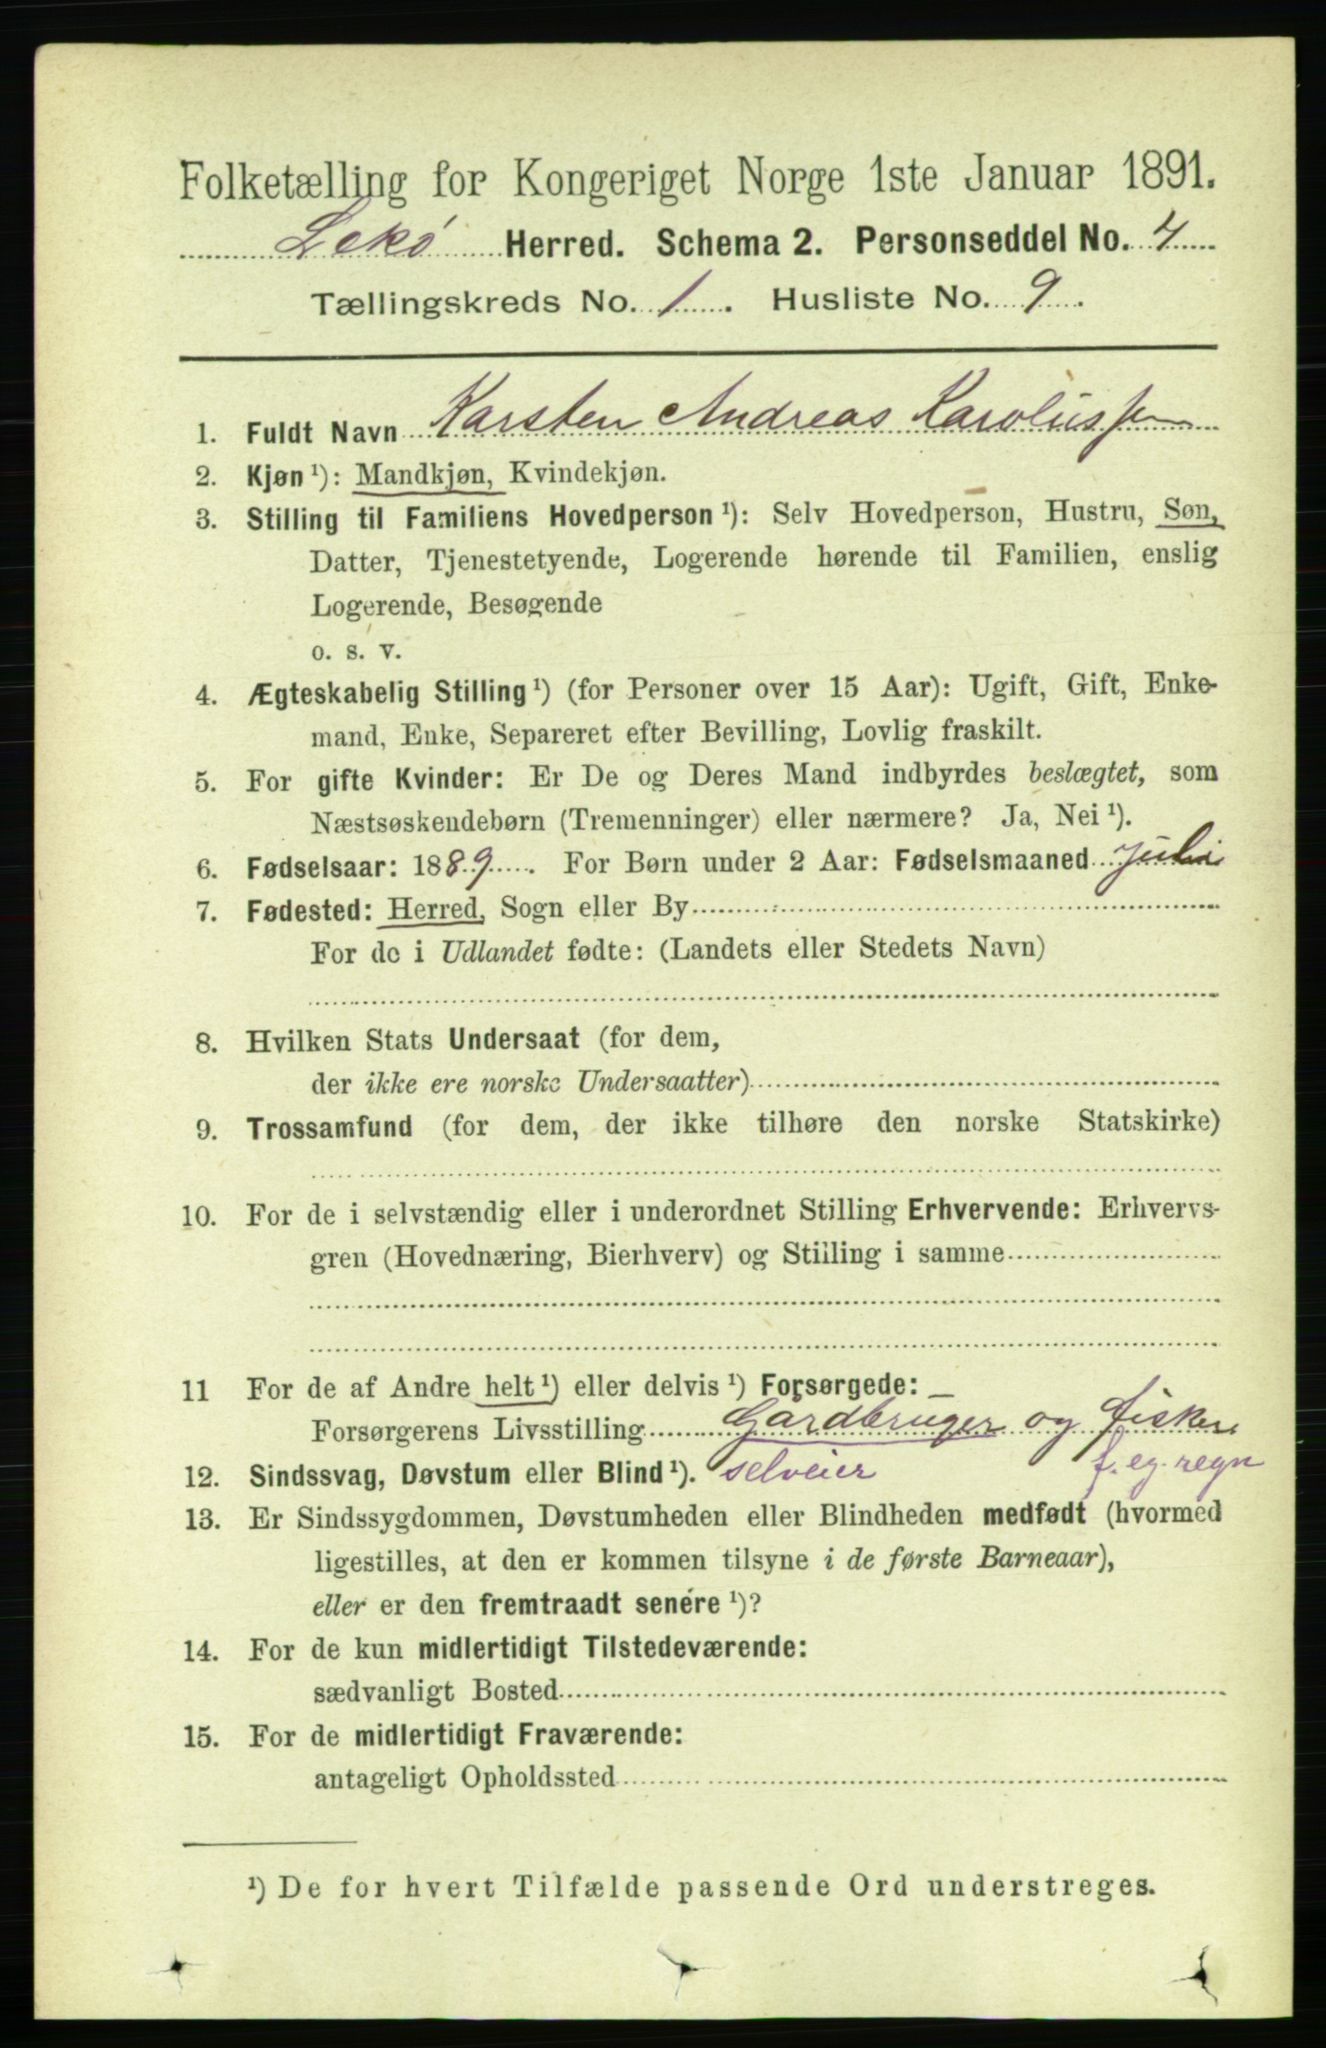 Folketælling for Kongeriget Norge 1ste Januar 1891.
Lekø Herred. Schema 2. Personseddel No. 4
Tællingskreds No. 1. Husliste No. 9.
1. Fuldt Navn Karsten Andreas Karolussen
2. Kjøn ¹): Mandkjøn, Kvindekjøn.
3. Stilling til Familiens Hovedperson ¹): Selv Hovedperson, Hustru, Søn,
Datter, Tjenestetyende, Logerende hørende til Familien, enslig
Logerende, Besøgende
o. s. v.
4. Ægteskabelig Stilling ¹) (for Personer over 15 Aar): Ugift, Gift, Enke-
mand, Enke, Separeret efter Bevilling, Lovlig fraskilt.
5. For gifte Kvinder: Er De og Deres Mand indbyrdes beslægtet, som
Næstsøskendebørn (Tremenninger) eller nærmere? Ja, Nei ¹).
6. Fødselsaar: 1889. For Børn under 2 Aar: Fødselsmaaned Juli
7. Fødested: Herred, Sogn eller By
For de i Udlandet fødte: (Landets eller Stedets Navn)
8. Hvilken Stats Undersaat (for dem,
der ikke ere norske Undersaatter)
9. Trossamfund (for dem, der ikke tilhøre den norske Statskirke)
10. For de i selvstændig eller i underordnet Stilling Erhvervende: Erhvervs-
gren (Hovednæring, Bierhverv) og Stilling i samme
11 For de af Andre helt ¹) eller delvis ¹) Forsørgede:
Forsørgerens Livsstilling Gårdbruger og fisker
12. Sindssvag, Døvstum eller Blind ¹). selveier f. eg. regn
13. Er Sindssygdommen, Døvstumheden eller Blindheden medfødt (hvormed
ligestilles, at den er kommen tilsyne i de første Barneaar),
eller er den fremtraadt senére ¹)?
14. For de kun midlertidigt Tilstedeværende:
sædvanligt Bosted
15. For de midlertidigt Fraværende:
antageligt Opholdssted
¹) De for hvert Tilfælde passende Ord understreges.